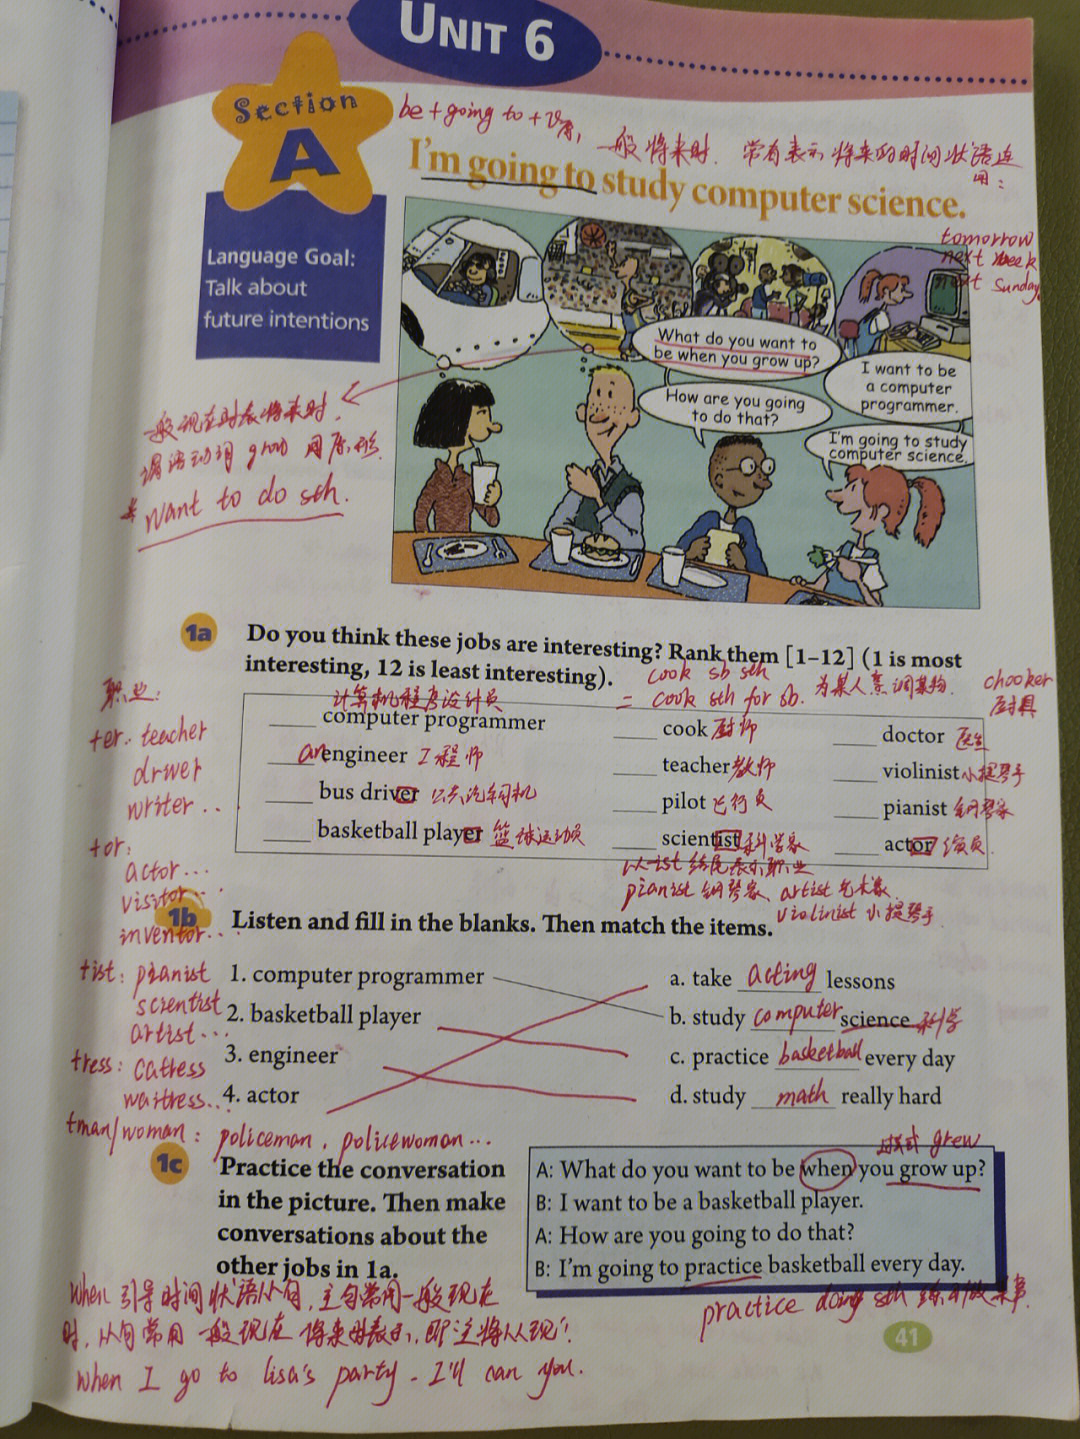 UNIT 6
Section
A
be + going to + v原, 一般将来时. 常有表示将来的时间状语连用:
I'm going to study computer science.
tomorrow
next week
next Sunday
Language Goal:
Talk about
future intentions
What do you want to
be when you grow up?
How are you going
to do that?
I want to be
a computer
programmer.
I'm going to study
computer science.
一般现在时表将来时.
谓语动词 grow 用原形.
* want to do sth.
1a
Do you think these jobs are interesting? Rank them [1–12] (1 is most
interesting, 12 is least interesting).
cook sb sth
= cook sth for sb. 为某人烹调某物.
chooker
厨具
计算机程序设计员
____ computer programmer
____ cook 厨师
____ doctor 医生
____ an engineer 工程师
____ teacher 教师
____ violinist 小提琴手
____ bus driver 公共汽车司机
____ pilot 飞行员
____ pianist 钢琴家
____ basketball player 篮球运动员
____ scientist 科学家
____ actor 演员.
以-ist 结尾表示职业
pianist 钢琴家、artist 艺术家
violinist 小提琴手.
职业:
+er: teacher
driver
writer..
+or:
actor...
visitor...
inventor...
+ist: pianist
scientist
artist...
+ress:
waitress..
+man/woman: policeman, policewoman...
1b
Listen and fill in the blanks. Then match the items.
1. computer programmer
2. basketball player
3. engineer
4. actor
a. take acting lessons
b. study computer science 科学
c. practice basketball every day
d. study math really hard
1c
Practice the conversation
in the picture. Then make
conversations about the
other jobs in 1a.
过去式 grew
A: What do you want to be when you grow up?
B: I want to be a basketball player.
A: How are you going to do that?
B: I'm going to practice basketball every day.
practice doing sth 练习做某事.
When 引导时间状语从句, 主句常用一般现在
时, 从句常用一般现在将来时表示, 即主将从现!
When I go to lisa's party. I'll can you.
41